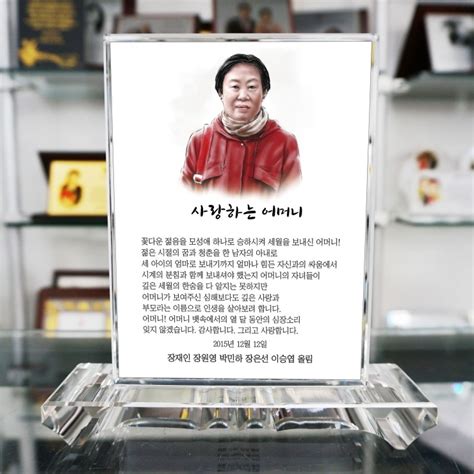 사랑하는 어머니
꽃다운 젊음을 모성애 하나로 승하시켜 세월을 보내신 어머니!
젊은 시절의 꿈과 청춘을 한 남자의 아내로
세 아이의 엄마로 보내기까지 얼마나 힘든 자신과의 싸움에서
시계의 분침과 함께 보내셔야 했는지 어머니의 자녀들이
깊은 세월의 한숨을 다 알지는 못하지만
어머니가 보여주신 심해보다도 깊은 사랑과
부모라는 이름으로 인생을 살아보려 합니다.
어머니! 어머니 뱃속에서의 열 달 동안의 심장소리
잊지 않겠습니다. 감사합니다. 그리고 사랑합니다.
2015년 12월 12일
장재인 장원영 박민하 장은선 이승엽 올림